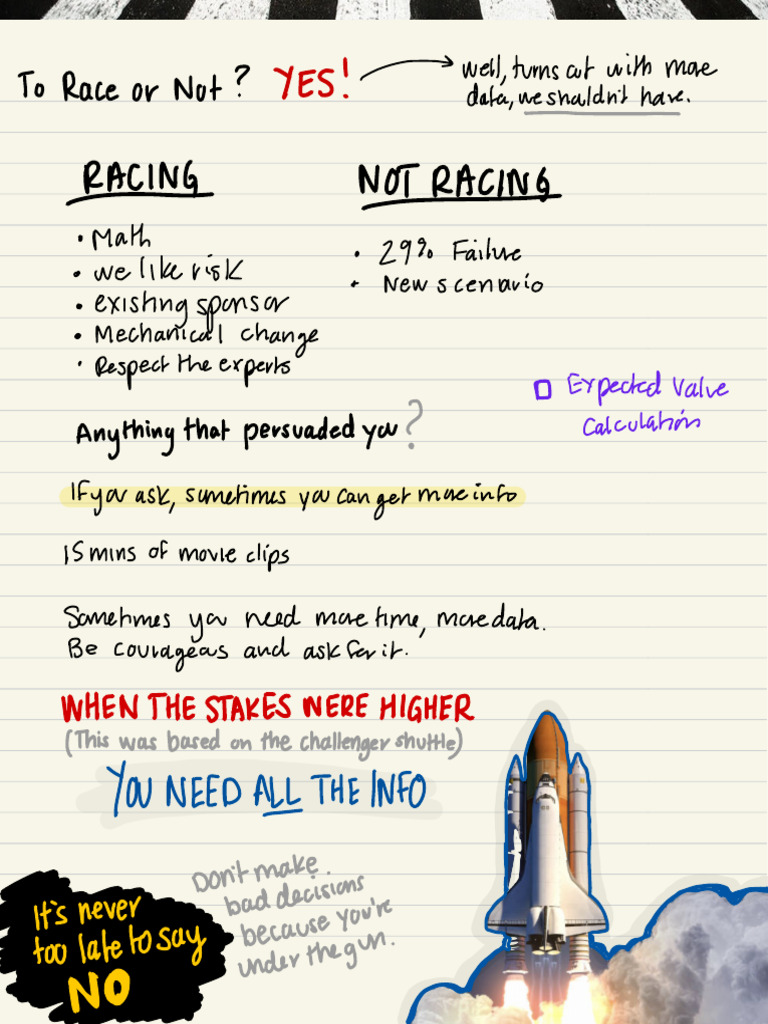 To Race or Not? YES!
well, turns out with more
data, we shouldn't have.
RACING
• Math
• we like risk
• existing sponsor
• Mechanical change
• Respect the experts
NOT RACING
• 29% Failure
• New scenario
Expected Value
Calculation
Anything that persuaded you?
If you ask, sometimes you can get more info
15 mins of movie clips
Sometimes you need more time, more data.
Be courageous and ask for it.
WHEN THE STAKES WERE HIGHER
(This was based on the challenger shuttle)
YOU NEED ALL THE INFO
Don't make
bad decisions
because you're
under the gun.
It's never
too late to say
NO